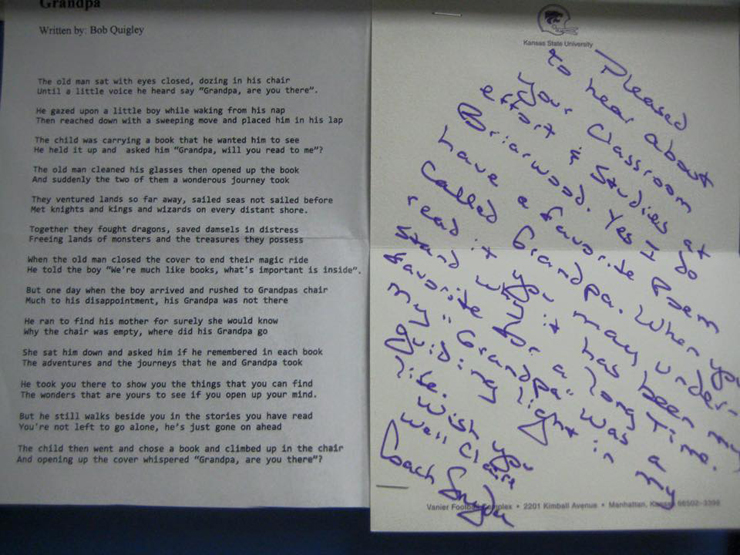 Grandpa
Written by: Bob Quigley
The old man sat with eyes closed, dozing in his chair
Until a little voice he heard say "Grandpa, are you there".
He gazed upon a little boy while waking from his nap
Then reached down with a sweeping move and placed him in his lap
The child was carrying a book that he wanted him to see
He held it up and asked him "Grandpa, will you read to me"?
The old man cleaned his glasses then opened up the book
And suddenly the two of them a wonderous journey took
They ventured lands so far away, sailed seas not sailed before
Met knights and kings and wizards on every distant shore.
Together they fought dragons, saved damsels in distress
Freeing lands of monsters and the treasures they possess
When the old man closed the cover to end their magic ride
He told the boy "We're much like books, what's important is inside".
But one day when the boy arrived and rushed to Grandpas chair
Much to his disappointment, his Grandpa was not there
He ran to find his mother for surely she would know
Why the chair was empty, where did his Grandpa go
She sat him down and asked him if he remembered in each book
The adventures and the journeys that he and Grandpa took
He took you there to show you the things that you can find
The wonders that are yours to see if you open up your mind.
But he still walks beside you in the stories you have read
You're not left to go alone, he's just gone on ahead
The child then went and chose a book and climbed up in the chair
And opening up the cover whispered "Grandpa, are you there"?
Kansas State University
Pleased
to hear about
your classroom
effort & studies at
Briarwood. Yes I do
have a favorite Poem
called Grandpa. When you
read it you may under-
stand why it has been my
favorite for a long time.
my "Grandpa" was a
guiding light in my
life.
Wish you
well
Coach Snyder
Vanier Complex • 2201 Kimball Avenue • Manhattan, 66502-3356